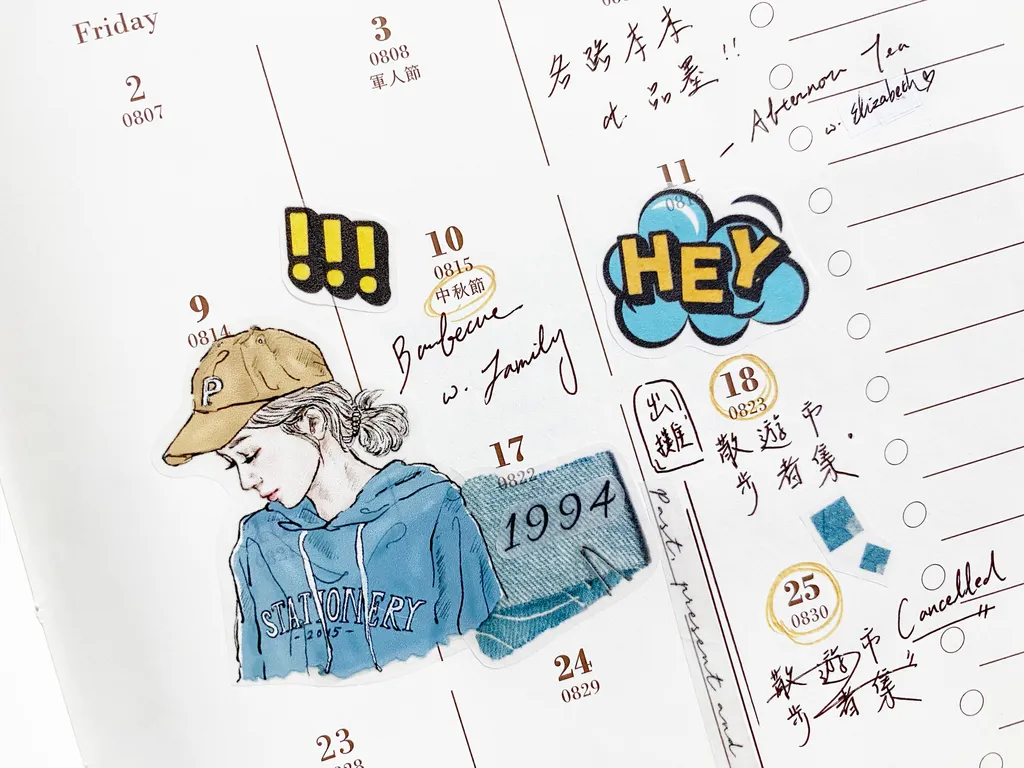 Friday
2
0807
3
0808
軍人節
各路本本
at. 品墨!!
- Afternoon Tea
w. Elizabeth♡
9
0814
!!!
10
0815
中秋節
Barbecue
w. Family
11
HEY
P
STATIONERY
-2015-
17
0822
1994
出攤
18
0823
散步遊者市集.
past, present and
23
24
0829
25
0830
散步遊者市集
Cancelled